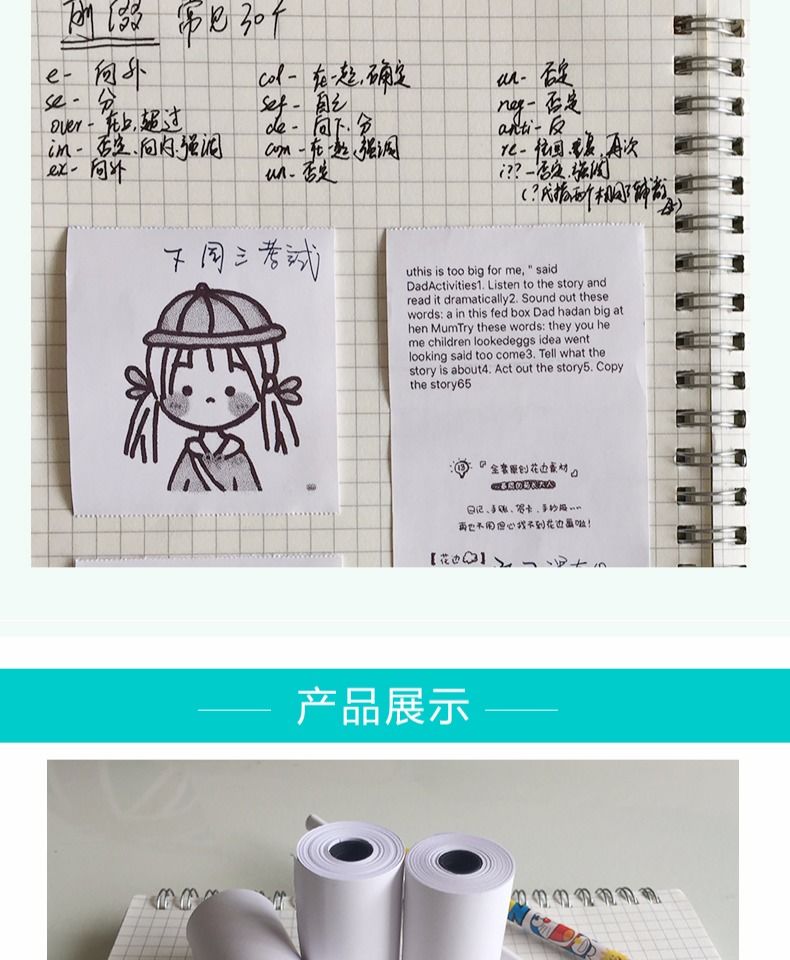 前缀 常见30个
e- 向外
se- 分
over- 在上,超过
im- 否定、向内、强调
ex- 向外
col- 在一起,确定
sef- 自己
de- 向下、分
com- 在一起、强调
un- 否定
un- 否定
neg- 否定
anti- 反
re- 往回,重复,再次
i??- 否定,强调
(?代指两个相同了解
下周三考试
uthis is too big for me, " said
DadActivities1. Listen to the story and
read it dramatically2. Sound out these
words: a in this fed box Dad hadan big at
hen MumTry these words: they you he
me children lookedeggs idea went
looking said too come3. Tell what the
story is about4. Act out the story5. Copy
the story65
13
『全套原创花边素材』
日记、手账、贺卡、手抄报~~~
再也不用担心找不到花边画啦!
【花边】
产品展示